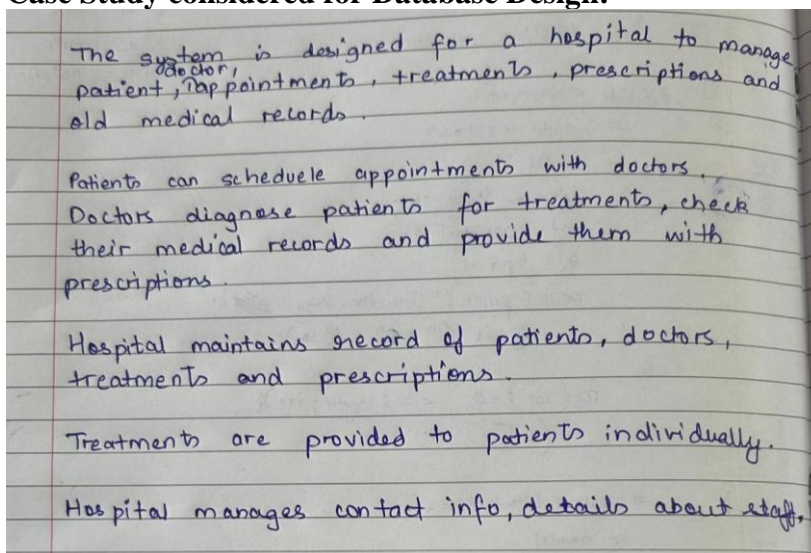 Case Study considered for Database Design:
The system is designed for a hospital to manage
patient, doctor, appointments, treatments, prescriptions and
old medical records.
Patients can scheduele appointments with doctors.
Doctors diagnose patients for treatments, check
their medical records and provide them with
prescriptions.
Hospital maintains record of patients, doctors,
treatments and prescriptions.
Treatments are provided to patients individually.
Hospital manages contact info, details about staff.